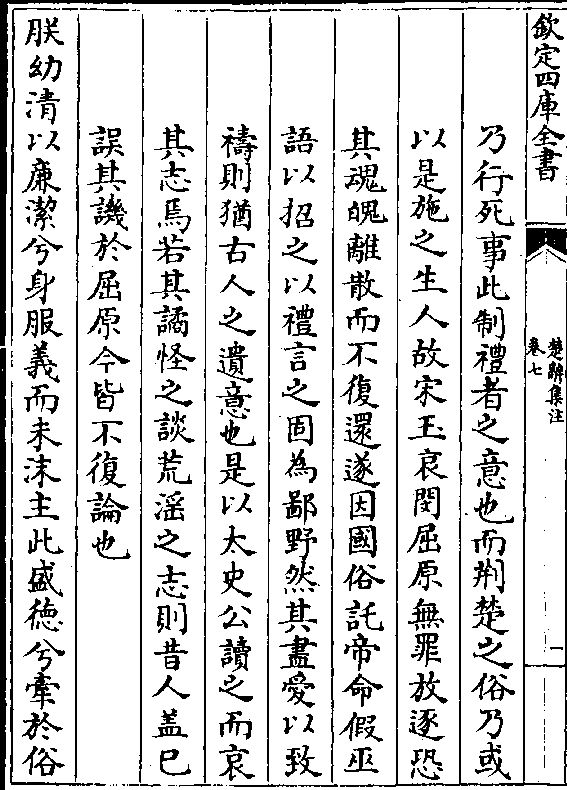 欽定四庫全書
楚辭集注
卷七
一
乃行死事此制禮者之意也而荆楚之俗乃或
以是施之生人故宋玉哀閔屈原無罪放逐恐
其魂魄離散而不復還遂因國俗託帝命假巫
語以招之以禮言之固為鄙野然其盡愛以致
禱則猶古人之遺意也是以太史公讀之而哀
其志焉若其譎怪之談荒滛之志則昔人盖已
誤其譏於屈原今皆不復論也
朕幼清以亷潔兮身服義而未沬主此盛徳兮牽於俗